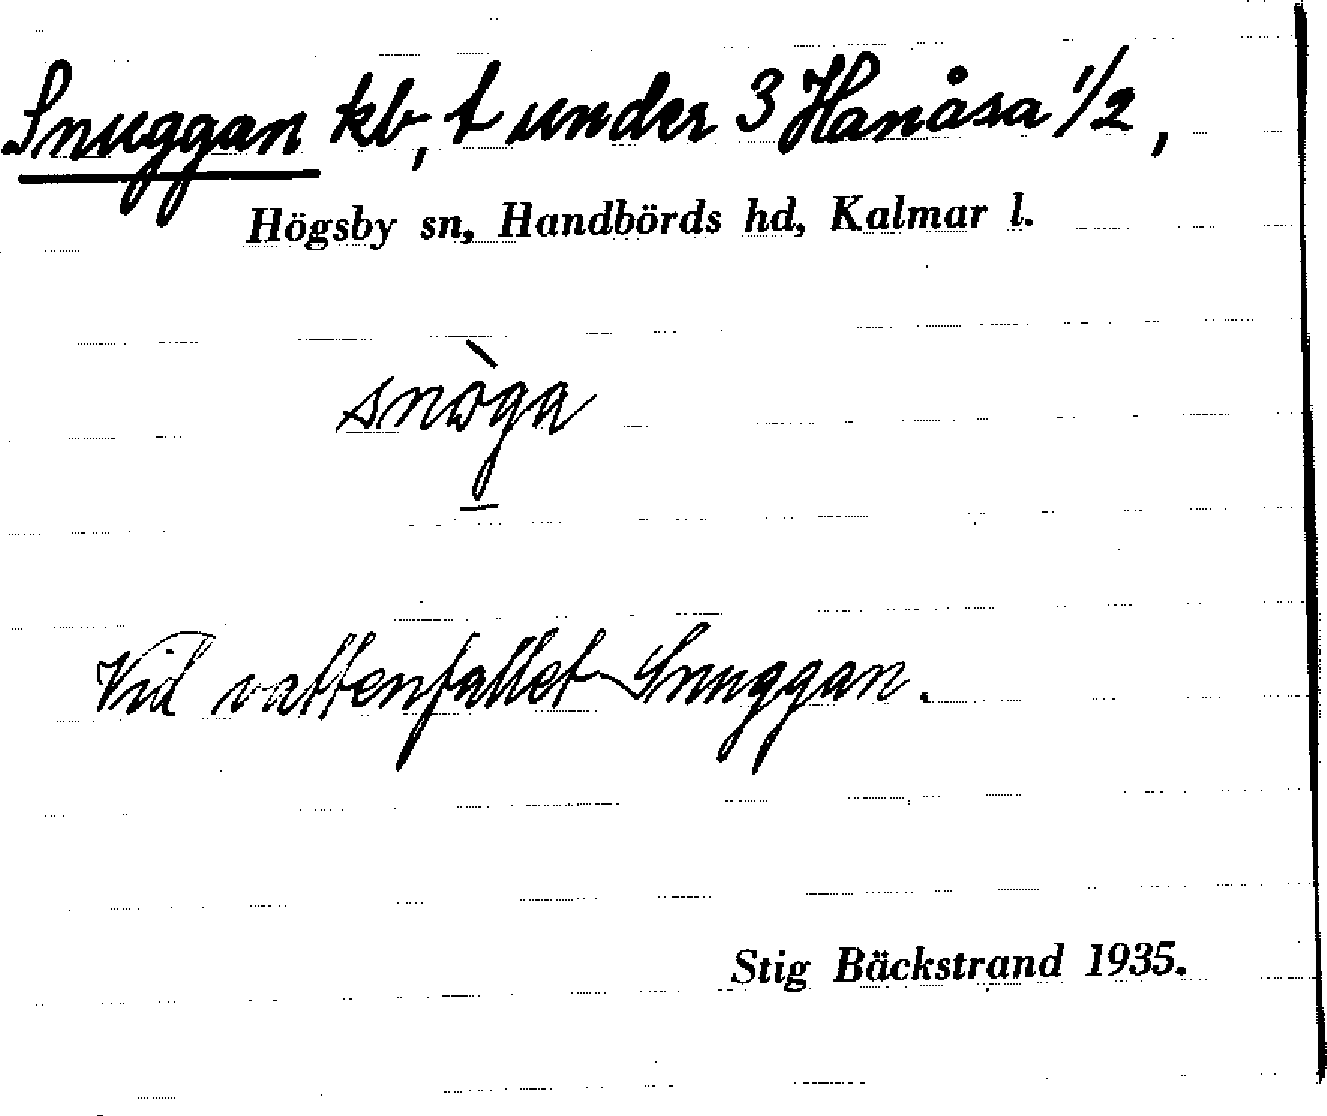 Snuggan kb, t under 3 Hanåsa 1/2,
Högsby sn, Handbörds hd, Kalmar l.
snòga
Vid vattenfallet Snuggan.
Stig Bäckstrand 1935.